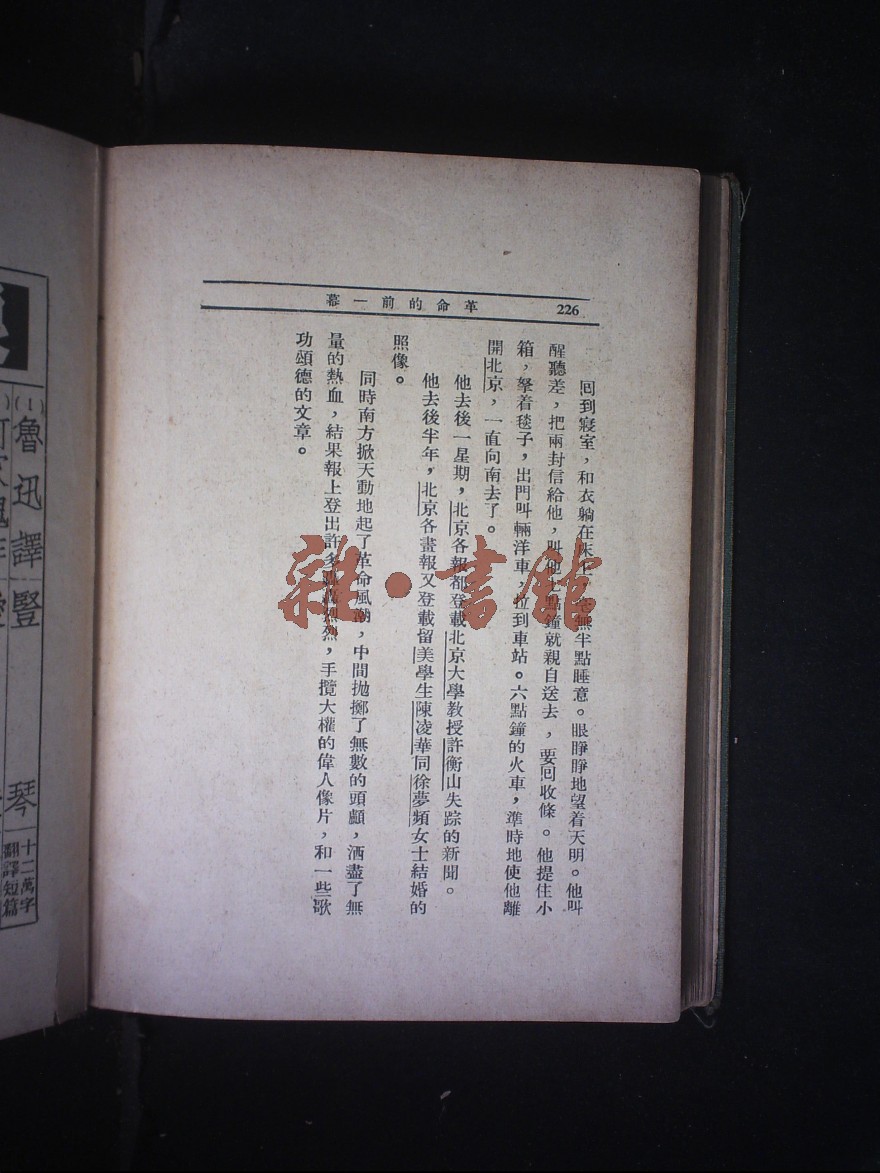 226
革命的前一幕
回到寢室，和衣躺在床上，無半點睡意。眼睜睜地望着天明。他叫
醒聽差，把兩封信給他，叫他七點鐘就親自送去，要回收條。他提住小
箱，拏着毯子，出門叫輛洋車，拉到車站。六點鐘的火車，準時地使他離
開北京，一直向南去了。
他去後一星期，北京各報都登載北京大學教授許衡山失踪的新聞。
他去後半年，北京各畫報又登載留美學生陳凌華同徐夢頻女士結婚的
照像。
同時南方掀天動地起了革命風潮，中間拋擲了無數的頭顱，洒盡了無
量的熱血，結果報上登出許多烈烈，手攬大權的偉人像片，和一些歌
功頌德的文章。
雜·書館
(1)
魯迅譯 豎琴
十二萬字
翻譯短篇